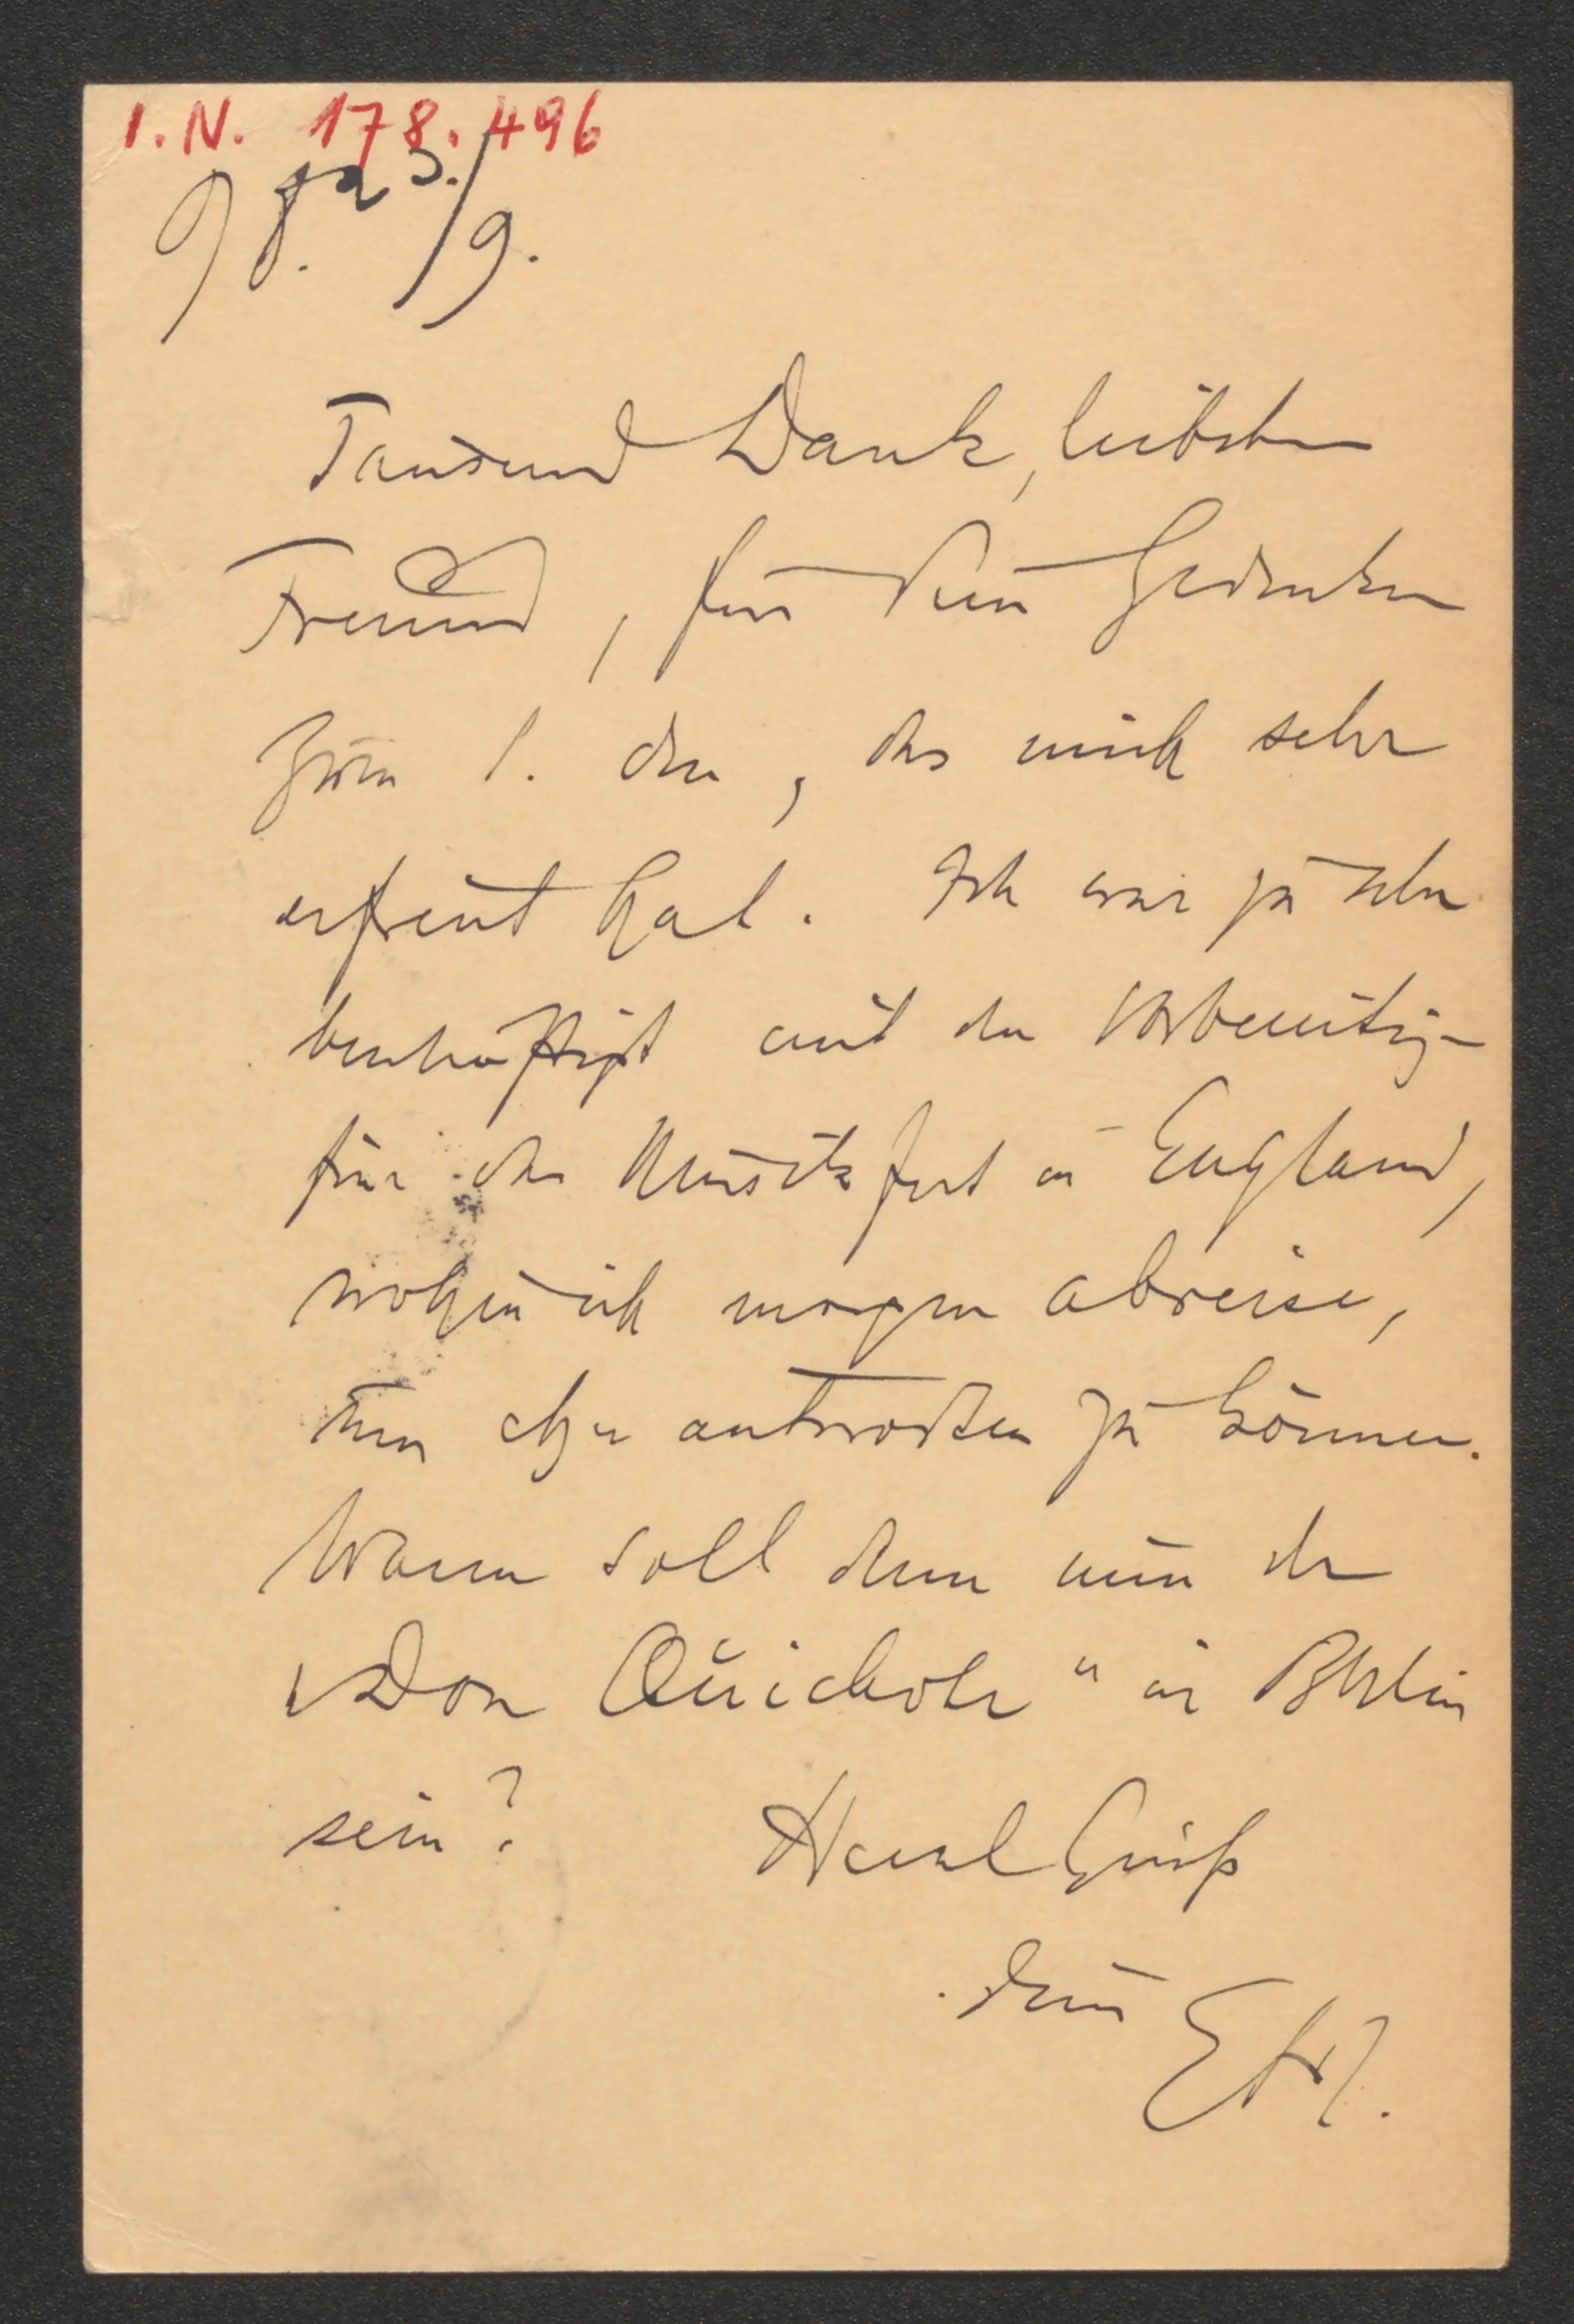 I.N. 178.496
3./9.
Tausend Dank, liebster
Freund, für Dein Gedenken
zum 1. den, das mich sehr
erfreut hat. Ich war zu sehr
beschäftigt mit den Vorbereitungen
für das Musikfest in England,
wohin ich morgen abreise,
um eher antworten zu können.
Wann soll denn nun der
„Don Quichote" in Berlin
sein? Herzl Gruß
Dein